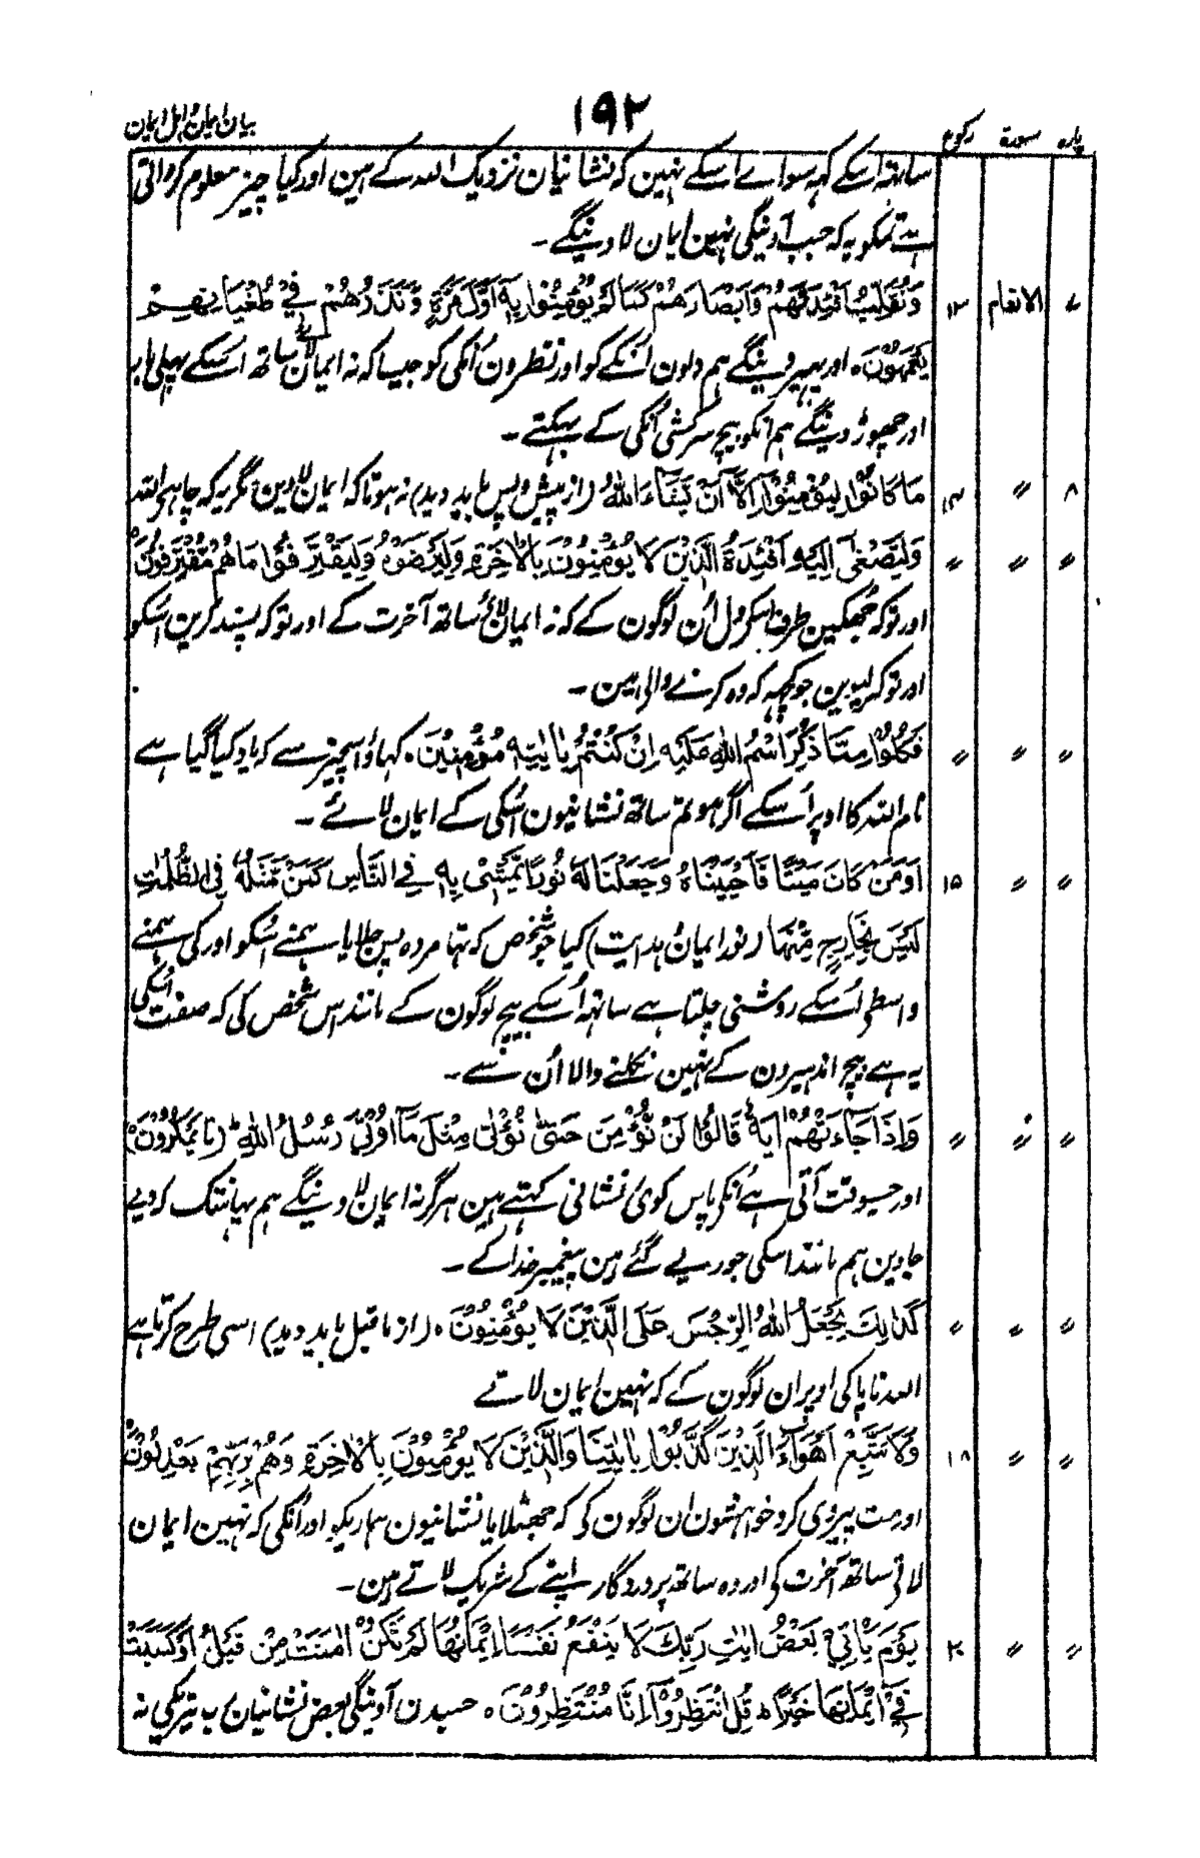 ۱۹۲
بیان ایمان و اہل ایمان
پارہ سورۃ رکوع
ساتھہ اسکے کہہ سواے اسکے نہین کہ نشانیان نزدیک اللہ کے ہین اور کیا چیز معلوم کرواتی
ہے تمکو یہ کہ جب آوینگی نہین ایمان لاوینگے ۔
۷ الانعام ۱۳ وَنُقَلِّبُ اَفْئِدَتَهُمْ وَاَبْصَارَهُمْ كَمَا لَمْ يُؤْمِنُوْا بِهٖٓ اَوَّلَ مَرَّةٍ وَّنَذَرُهُمْ فِيْ طُغْيَانِهِمْ
يَعْمَهُوْنَ ہ اور پہیر دینگے ہم دلون اُنکے کو اور نظرون اُنکی کو جیسا کہ نہ ایمان لائے ساتھ اُسکے پہلی بار
اور چھوڑ دینگے ہم انکو بیچ سرکشی اُنکی کے بہکتے ۔
۸ 〃 ۱۴ مَا كَانُوْا لِيُؤْمِنُوْٓا اِلَّآ اَنْ يَّشَآءَ اللّٰهُ (از پیش و پس باید دید) نہ ہوتا کہ ایمان لاوین مگر یہ کہ چاہے اللہ
〃 〃 〃 وَلِتَصْغٰٓى اِلَيْهِ اَفْئِدَةُ الَّذِيْنَ لَا يُؤْمِنُوْنَ بِالْاٰخِرَةِ وَلِيَرْضَوْهُ وَلِيَقْتَرِفُوْا مَا هُمْ مُّقْتَرِفُوْنَ
اور توکہ جھکین طرف اسکی دل اُن لوگون کے کہ نہ ایمان لائے ساتھ آخرت کے اور توکہ پسند کرین اسکو
اور توکہ لیوین جو کچہہ کہ وہ کرنے والی ہین ۔
〃 〃 〃 فَكُلُوْا مِمَّا ذُكِرَ اسْمُ اللّٰهِ عَلَيْهِ اِنْ كُنْتُمْ بِاٰيٰتِهٖ مُؤْمِنِيْنَ ۔ کہاؤ اُسچیز سے کہ یاد کیا گیا ہے
نام اللہ کا اوپر اُسکے اگر ہو تم ساتھ نشانیون اُسکی کے ایمان لائے ۔
〃 〃 ۱۵ اَوَمَنْ كَانَ مَيْتًا فَاَحْيَيْنَاهُ وَجَعَلْنَا لَهٗ نُوْرًا يَّمْشِيْ بِهٖ فِي النَّاسِ كَمَنْ مَّثَلُهٗ فِي الظُّلُمٰتِ
لَيْسَ بِخَارِجٍ مِّنْهَا (نور ایمان ہدایت) کیا جو شخص کہ تہا مردہ پس جلایا ہمنے اسکو اور کی ہمنے
واسطی اُسکے روشنی چلتا ہے ساتہہ اُسکے بیچ لوگون کے مانند اس شخص کی کہ صفت اسکی
یہ ہے بیچ اندہیرون کے نہین نکلنے والا اُن سے ۔
〃 〃 〃 وَاِذَا جَآءَتْهُمْ اٰيَةٌ قَالُوْا لَنْ نُّؤْمِنَ حَتّٰى نُؤْتٰى مِثْلَ مَآ اُوْتِيَ رُسُلُ اللّٰهِ ؕ (تا يَمْكُرُوْنَ)
اور جسوقت آتی ہے اُنکی پاس کوئ نشانی کہتے ہین ہرگز نہ ایمان لاوینگے ہم یہانتک کہ دیے
جاوین ہم مانند اسکی جو دیے گئے ہین پیغمبر خدا کے ۔
〃 〃 〃 كَذٰلِكَ يَجْعَلُ اللّٰهُ الرِّجْسَ عَلَى الَّذِيْنَ لَا يُؤْمِنُوْنَ ہ (از ماقبل باید دید) اسی طرح کرتا ہے
اللہ ناپاکی اوپر ان لوگون کے کہ نہین ایمان لاتے
〃 〃 ۱۸ وَلَا تَتَّبِعْ اَهْوَآءَ الَّذِيْنَ كَذَّبُوْا بِاٰيٰتِنَا وَالَّذِيْنَ لَا يُؤْمِنُوْنَ بِالْاٰخِرَةِ وَهُمْ بِرَبِّهِمْ يَعْدِلُوْنَ
اور مت پیروی کرو خواہشون ان لوگون کی کہ جھٹلایا نشانیون ہماریکو اور اُنکی کہ نہین ایمان
لاتی ساتھ آخرت کی اور وہ ساتھ پروردگار اپنے کے شریک لاتے ہین ۔
〃 〃 ۲۰ يَوْمَ يَاْتِيْ بَعْضُ اٰيٰتِ رَبِّكَ لَا يَنْفَعُ نَفْسًا اِيْمَانُهَا لَمْ تَكُنْ اٰمَنَتْ مِنْ قَبْلُ اَوْ كَسَبَتْ
فِيْٓ اِيْمَانِهَا خَيْرًا ؕ قُلِ انْتَظِرُوْٓا اِنَّا مُنْتَظِرُوْنَ ہ جسدن آوینگی بعض نشانیان رب تیریکی نہ